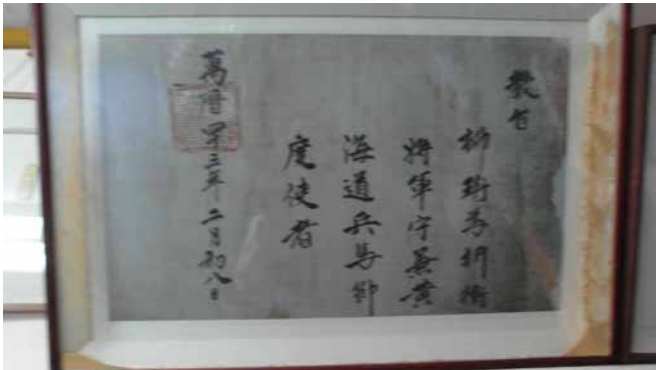 敎旨
柳珩爲折衝
將軍守兼黃
海道兵馬節
度使者
萬曆四十三年二月初八日